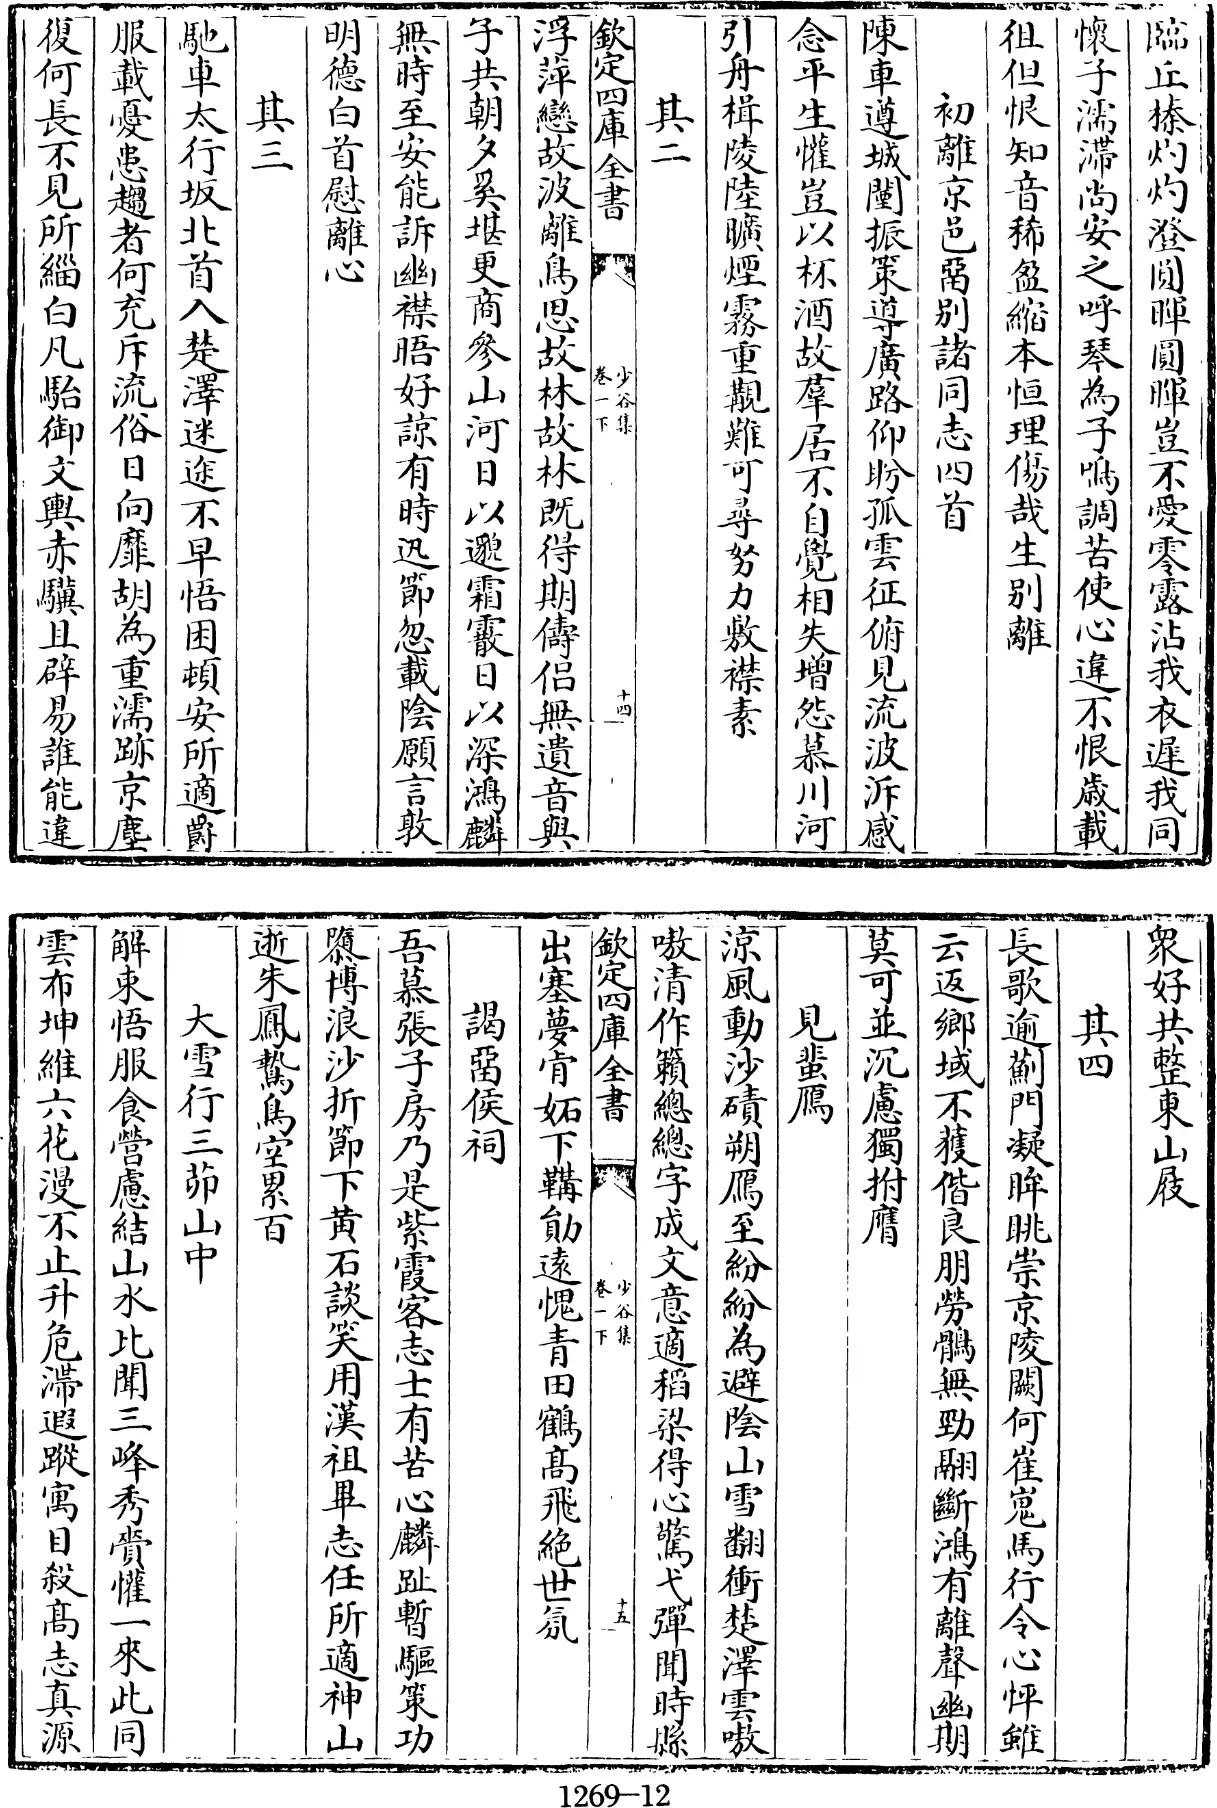 臨丘榛灼灼澄圓暉圓暉豈不愛零露沾我衣遲我同
懷子濡滯尚安之呼琴為子鳴調苦使心違不恨歲載
徂但恨知音稀盈縮本恒理傷哉生别離
初離京邑留别諸同志四首
陳車遵城闉振策導廣路仰盻孤雲征俯見流波泝感
念平生懽豈以杯酒故羣居不自覺相失增怨慕川河
引舟楫陵陸曠煙霧重覯難可尋努力敷襟素
其二
欽定四庫全書
少谷集
卷一下
十四
浮萍戀故波離鳥思故林故林既得期儔侣無遺音與
子共朝夕奚堪更商參山河日以邈霜霰日以深鴻麟
無時至安能訴幽襟晤好諒有時迅節忽載陰願言敦
明德白首慰離心
其三
馳車太行坂北首入楚澤迷途不早悟困頓安所適爵
服載憂患趨者何充斥流俗日向靡胡為重濡跡京塵
復何長不見所緇白凡駘御文輿赤驥且辟易誰能違
衆好共整東山屐
其四
長歌逾薊門凝眸眺崇京陵闕何崔嵬馬行令心怦雖
云返鄉域不獲偕良朋勞鶻無勁翮斷鴻有離聲幽期
莫可並沉慮獨拊膺
見蜚鴈
涼風動沙磧朔鴈至紛紛為避陰山雪翻衝楚澤雲嗷
嗷清作籟總總字成文意適稻粱得心驚弋彈聞時縣
欽定四庫全書
少谷集
卷一下
十五
出塞夢肯妬下鞲勛遠愧青田鶴高飛絶世氛
謁留侯祠
吾慕張子房乃是紫霞客志士有苦心麟趾暫驅策功
隳博浪沙折節下黄石談笑用漢祖畢志任所適神山
逝朱鳳鷙鳥空累百
大雪行三茆山中
解東悟服食營慮結山水比聞三峰秀賫懽一來此同
雲布坤維六花漫不止升危滯遐蹤寓目殺高志真源
1269-12